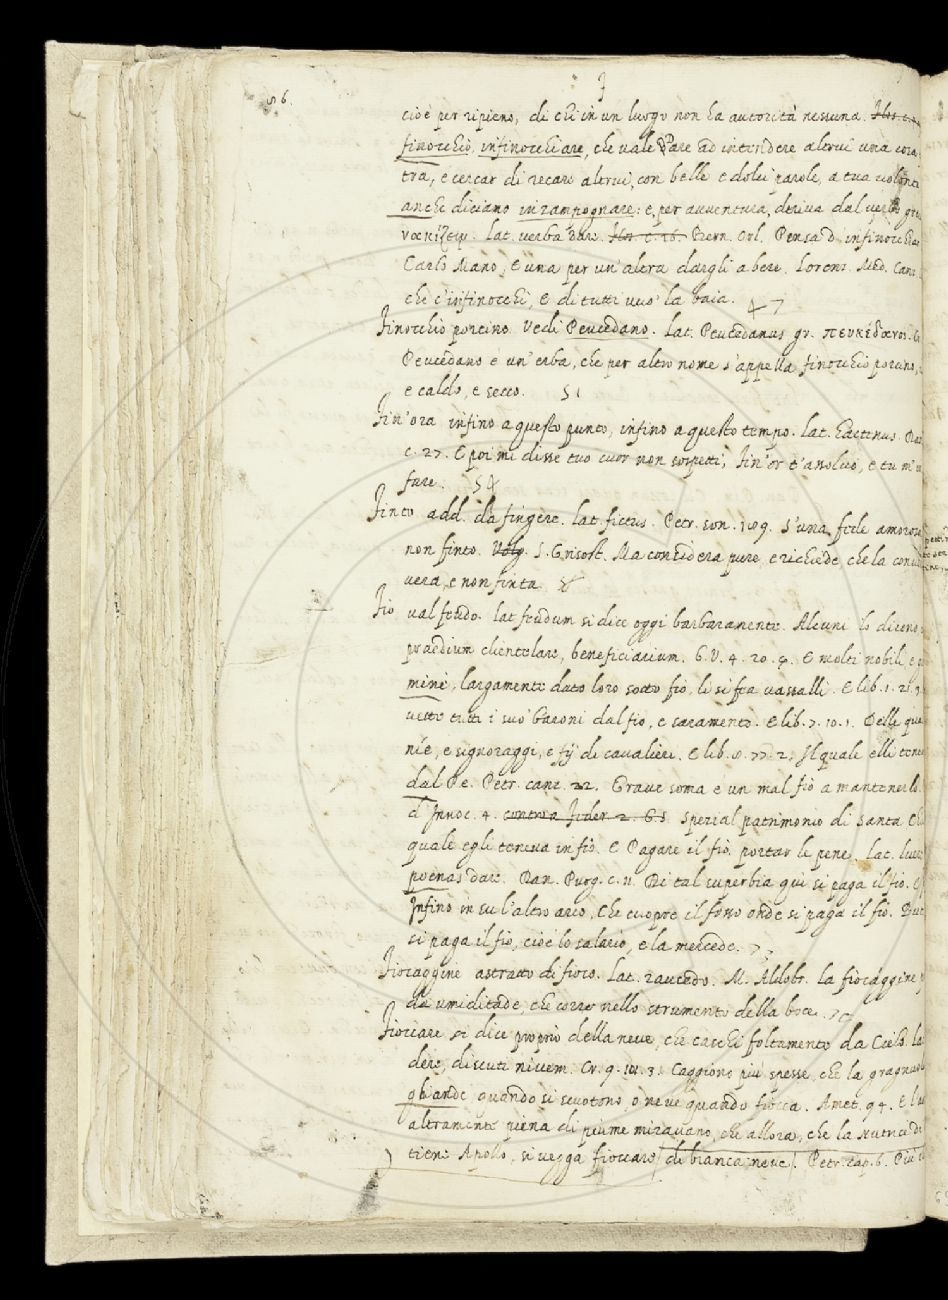 56.
cioè per ripieno, di chi in un luogo non ha autorità nessuna.
finocchio, infinocchiare, che vale Dare ad intendere altrui una cosa
tra, e cercar di recare altrui, con belle e dolci parole, a tua volontà
anche diciamo inzampognare: e, per avventura, deriva dal verbo gre
Lat. verba dare. Bern. Orl. Pensa d'infinocchiar
Carlo Mano, E una per un'altra dargli a bere. Lorenz. Med. Canz.
che c'infinocchi, E di tutti vuo' la baia.
finocchio porcino. Vedi Peucedano. Lat. Peucedanus gr. πευκέδανος.
Peucedano è un'erba, che per altro nome s'appella finocchio porcino,
e caldo, e secco. 51
fin'ora infino a questo punto, infino a questo tempo. Lat. hactenus. Dan
c. 27. E poi mi disse tuo cuor non sospetti; fin'or t'assolvo, e tu m'in
fare.
finto add. da fingere. lat. fictus. Petr. son. 189. S'una fede amorosa
non finto. S. Grisost. Ma considera pure, e richiede, che la conv
vera, e non finta
fio val feudo. lat. feudum si dice oggi barbaramente. Alcuni lo dicono
praedium clientelare, beneficiarium. G. V. 4. 20. 4. E molti nobili, e
mini, largamente dato loro sotto fio, li si fea vassalli. E lib. 1. 21.
vetto tutti i suo' Baroni dal fio, e saramento. E lib. 7. 10. 1. Delle que
nie, e signoraggi, e fij di cavalieri. E lib. 8. 77. 2. Il quale elli tene
dal Re. Petr. canz. 22. Grave soma è un mal fio a mantenerlo.
d'Innoc. 4. spezial patrimonio di santa Chi
quale egli teneva in fio. E Pagare il fio. portar le pene. Lat. luere
poenas dare. Dan. Purg. c. 11. Di tal superbia qui si paga il fio. E
Infino in su l'altro arco, che cuopre il fosso onde si paga il fio. But
si paga il fio, cioè lo salario, e la mercede.
fiocaggine astratto di fioco. Lat. raucedo. M. Aldobr. La fiocaggine
da umiditade, che corre nello strumento della boce.
fioccare si dice proprio della neve, che caschi foltamente da Cielo. La
dere, discuti nivem. Cr. 9. 3. Caggiono più spesse, che la gragnuola
ghiande quando si scuotono, o neve quando fiocca. Amet. 94. E l'
altramente piena di piume miravano, che allora, che la Nutrice di
tiene Apollo, si vegga fioccare di bianca neve. Petr. cap. 6. Più